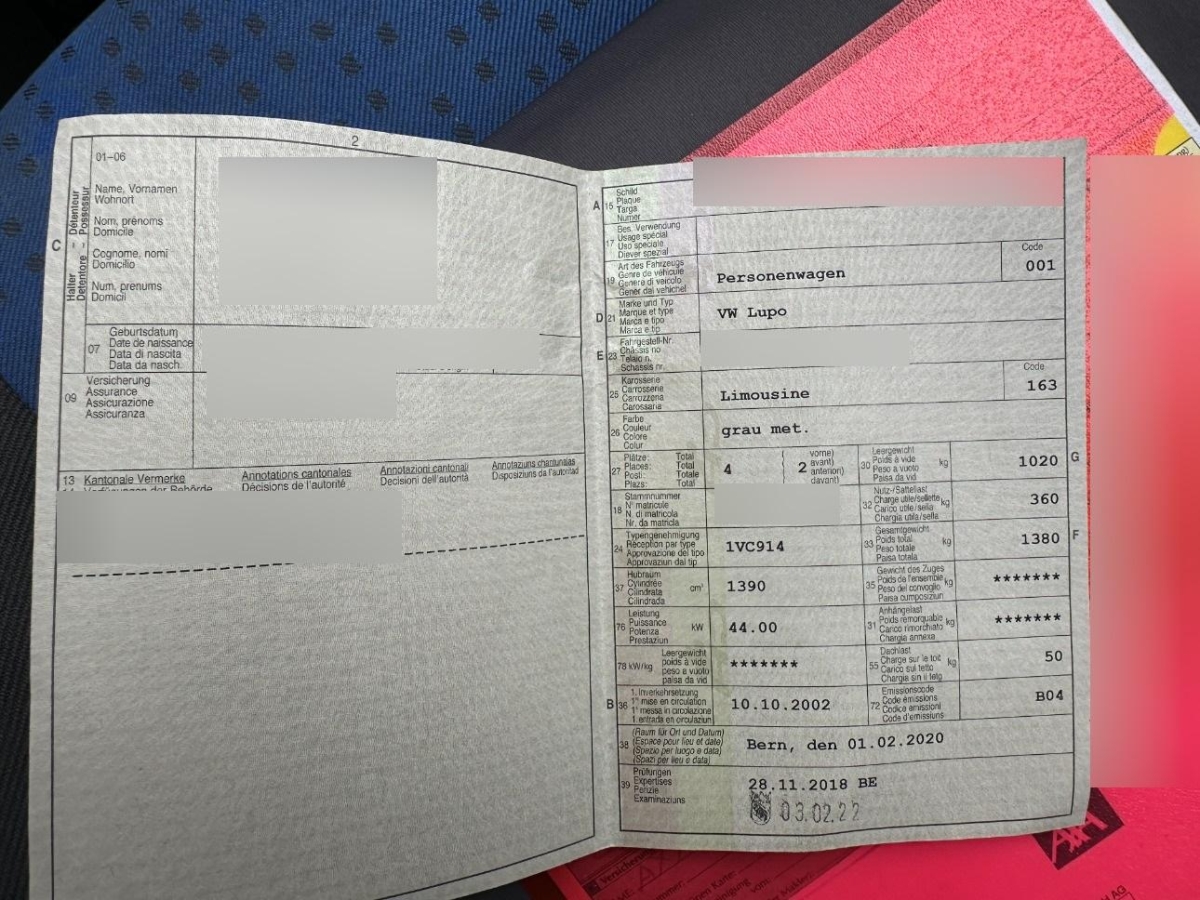 2
01-06
Halter – Détenteur
Detentore – Possessur
C
Name, Vornamen
Wohnort
Nom, prénoms
Domicile
Cognome, nomi
Domicilio
Num, prenums
Domicil
07
Geburtsdatum
Date de naissance
Data di nascita
Data da nasch.
09
Versicherung
Assurance
Assicurazione
Assicuranza
13 Kantonale Vermerke Annotations cantonales Annotazioni cantonali Annotaziuns chantunalas
Verfügungen der Behörde Décisions de l'autorité Decisioni dell'autorità Disposiziuns da l'autoritad
A 15
Schild
Plaque
Targa
Numer
17
Bes. Verwendung
Usage spécial
Uso speciale
Diever spezial
19
Art des Fahrzeugs
Genre de véhicule
Genere di veicolo
Gener dal vehichel
Personenwagen
Code
001
D 21
Marke und Typ
Marque et type
Marca e tipo
Marca e tip
VW Lupo
E 23
Fahrgestell-Nr.
Châssis no
Telaio n.
Schassis nr.
25
Karosserie
Carrosserie
Carrozzeria
Carossaria
Limousine
Code
163
26
Farbe
Couleur
Colore
Colur
grau met.
27
Plätze: Total
Places: Total
Posti: Totale
Plazs: Total
4
( 2
vorne)
avant)
anteriori)
davant)
30
Leergewicht
Poids à vide
Peso a vuoto
Paisa da vid
kg
1020
G
18
Stammnummer
N° matricule
N. di matricola
Nr. da matricla
32
Nutz-/Sattellast
Charge utile/sellette
Carico utile/sella
Chargia utila/sella
kg
360
24
Typengenehmigung
Réception par type
Approvazione del tipo
Approvaziun dal tip
1VC914
33
Gesamtgewicht
Poids total
Peso totale
Paisa totala
kg
1380
F
37
Hubraum
Cylindrée
Cilindrata
Cilindrada
cm³
1390
35
Gewicht des Zuges
Poids de l'ensemble
Peso del convoglio
Paisa cumposiziun
kg
*******
76
Leistung
Puissance
Potenza
Prestaziun
kW
44.00
31
Anhängelast
Poids remorquable
Carico rimorchiato
Chargia annexa
kg
*******
78 kW/kg
Leergewicht
poids à vide
peso a vuoto
paisa da vid
*******
55
Dachlast
Charge sur le toit
Carico sul tetto
Chargia sin il tetg
kg
50
B 36
1. Inverkehrsetzung
1re mise en circulation
1a messa in circolazione
1. entrada en circulaziun
10.10.2002
72
Emissionscode
Code émissions
Codice emissioni
Code d'emissiuns
B04
38
(Raum für Ort und Datum)
(Espace pour lieu et date)
(Spazio per luogo e data)
(Spazi per lieu e data)
Bern, den 01.02.2020
39
Prüfungen
Expertises
Perizie
Examinaziuns
28.11.2018 BE
03.02.22
AXA